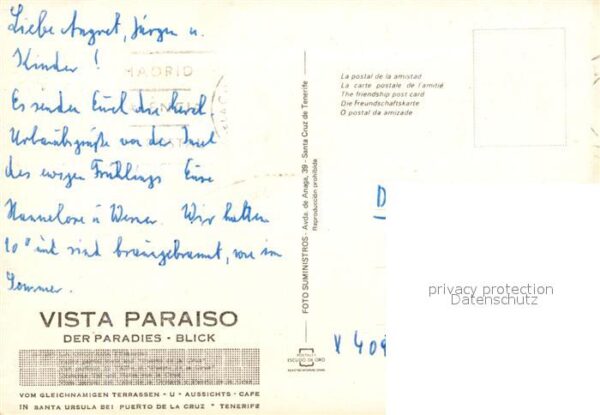 Liebe Angret, Jürgen u.
Kinder!
MADRID
Es senden Euch die herzl.
Urlaubsgrüße von der Insel
des ewigen Frühlings Eure
Hannelore u Werner. Wir hatten
und sind braungebrannt, wie im
Sommer.
VISTA PARAISO
DER PARADIES - BLICK
VOM GLEICHNAMIGEN TERRASSEN - U - AUSSICHTS - CAFE
IN SANTA URSULA BEI PUERTO DE LA CRUZ * TENERIFE
FOTO SUMINISTROS - Avda. de Anaga, 39 - Santa Cruz de Tenerife
Reproducción prohibida
La postal de la amistad
La carte postale de l'amitié
The friendship post card
Die Freundschaftskarte
O postal da amizade
D
privacy protection
Datenschutz
POSTALES
ESCUDO DE ORO